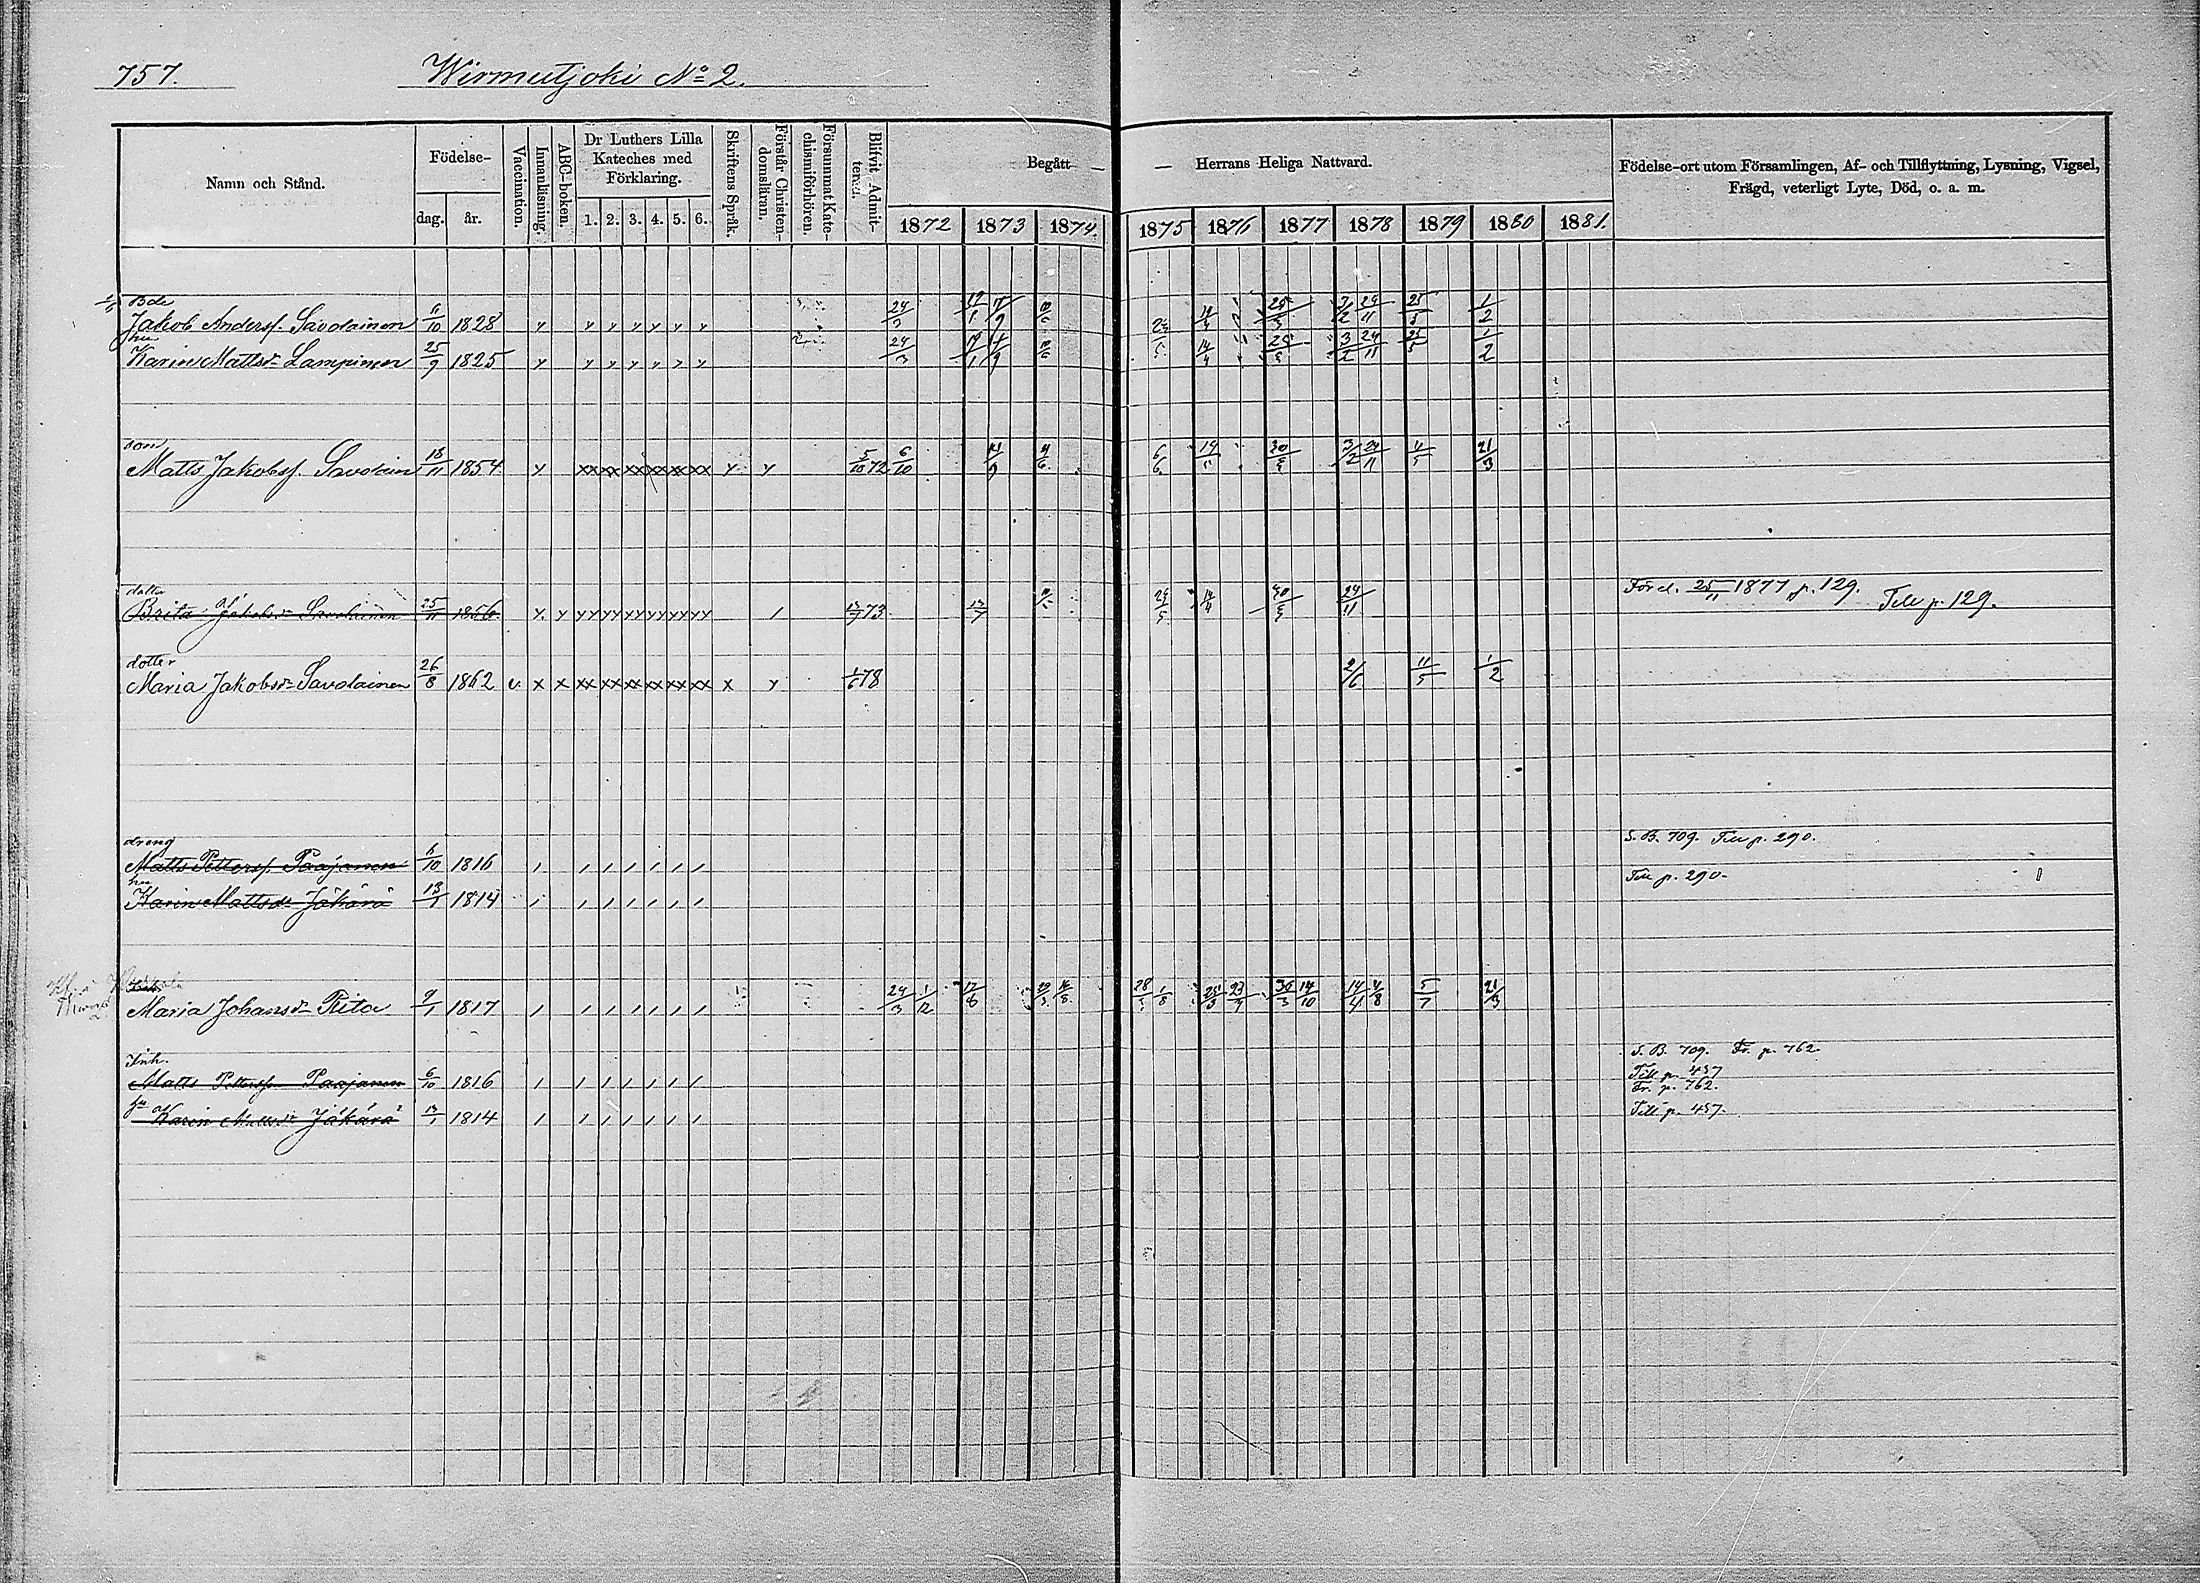 757.
Wirmutjoki No 2.
Namn och Stånd.
Födelse-
dag.
år.
Vaccination.
Innanläsning.
ABC-boken.
Dr Luthers Lilla
Kateches med
Förklaring.
1. 2. 3. 4. 5. 6.
Skriftens Språk.
Förstår Christen-
domsläran.
Försummat Kate-
chismiförhören.
Blifvit Admit-
terad.
Begått — — Herrans Heliga Nattvard.
1872 1873 1874. 1875 1876 1877 1878 1879 1880 1881.
Födelse-ort utom Församlingen, Af- och Tillflyttning, Lysning, Vigsel,
Frägd, veterligt Lyte, Död, o. a. m.
Bde
Jakob Anderss. Savolainen 11/10 1828 24/3 1/2
hu
Karin Mattsdr Lampinen 25/9 1825 24/3 3/2 24/11 25/5 1/2
son
Matts Jakobss. Savolain 18/11 1854 5/10 72 6/10 6/6 3/2 24/11 21/3
dotter
Brita Jakobsdr Savolainen 25/11 1856 73 24/11 Förel. 25/11 1877 p. 129. Till p. 129.
dotter
Maria Jakobsdr Savolainen 26/8 1862 v. x x xx xx xx xx xx xx x 1/6 78 2/6 11/5 1/2
dreng
Matts Petterss. Paajanen 6/10 1816 S. B. 709. Till p. 290.
hu
Karin Mattsdr Jäkärä 13/1 1814 Till p. 290.
Maria Johansdr Rita 9/1 1817 24/3 1/12 14/10 14/4 4/8 5/7 21/3
Inh.
Matts Petterss. Paajanen 6/10 1816 S. B. 709. Fr. p. 762.
Till p. 457
hu Karin Mattsdr Jäkärä 13/1 1814 Fr. p. 762.
Till p. 457.